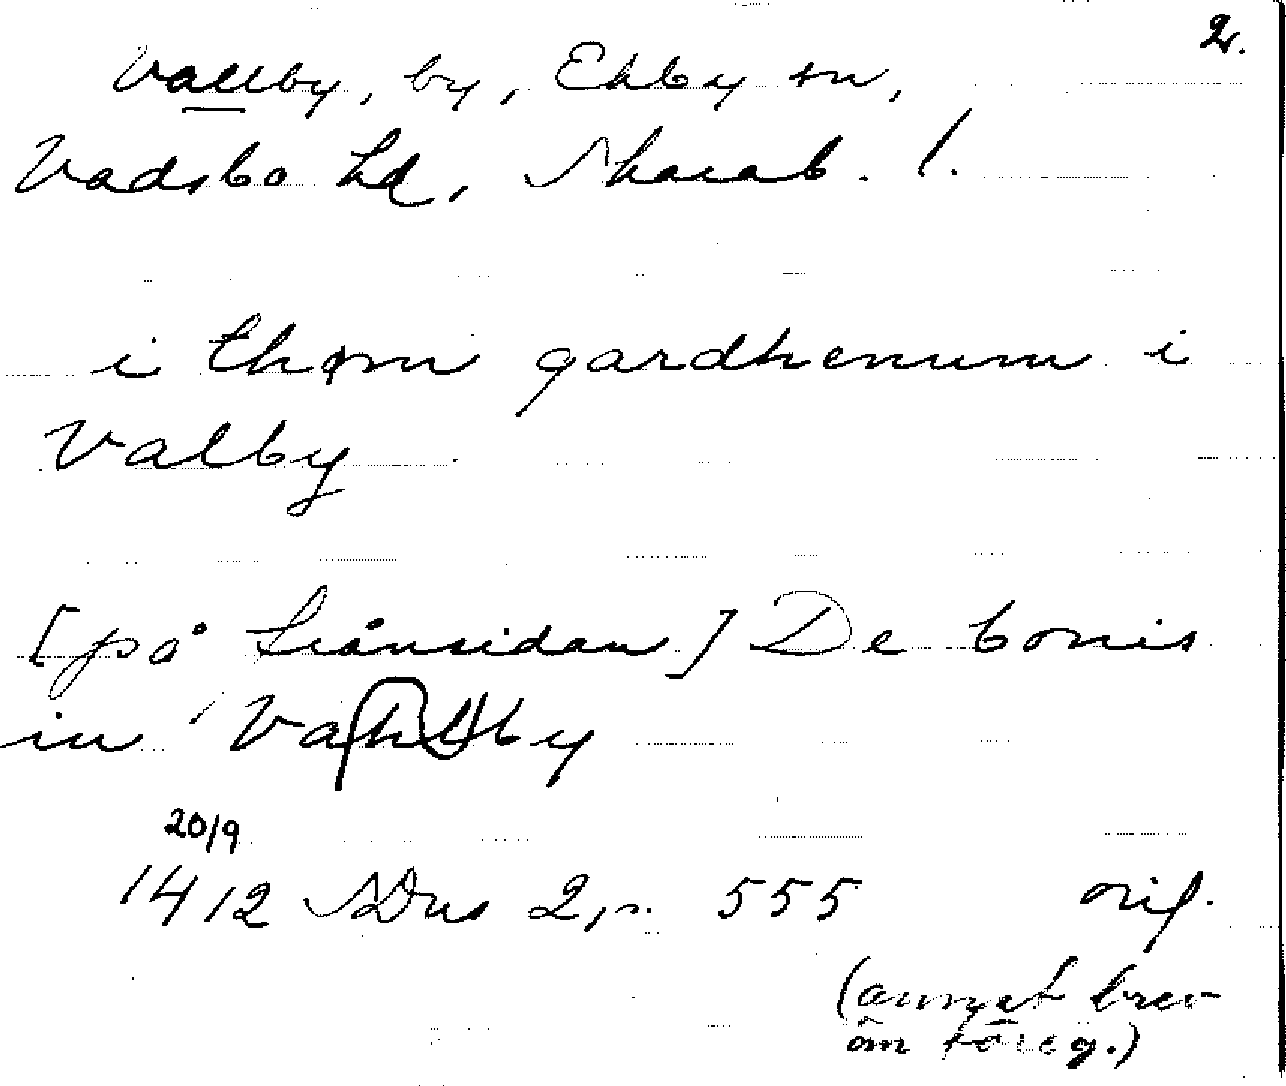 2.
Vallby, by, Ekby sn,
Vadsbo hd, Skarab. l.
i thøm gardhenum i
Valby
[på frånsidan] De bonis
in Valby
20/9
1412 SDns 2, s. 555 orig.
(annat brev
än föreg.)